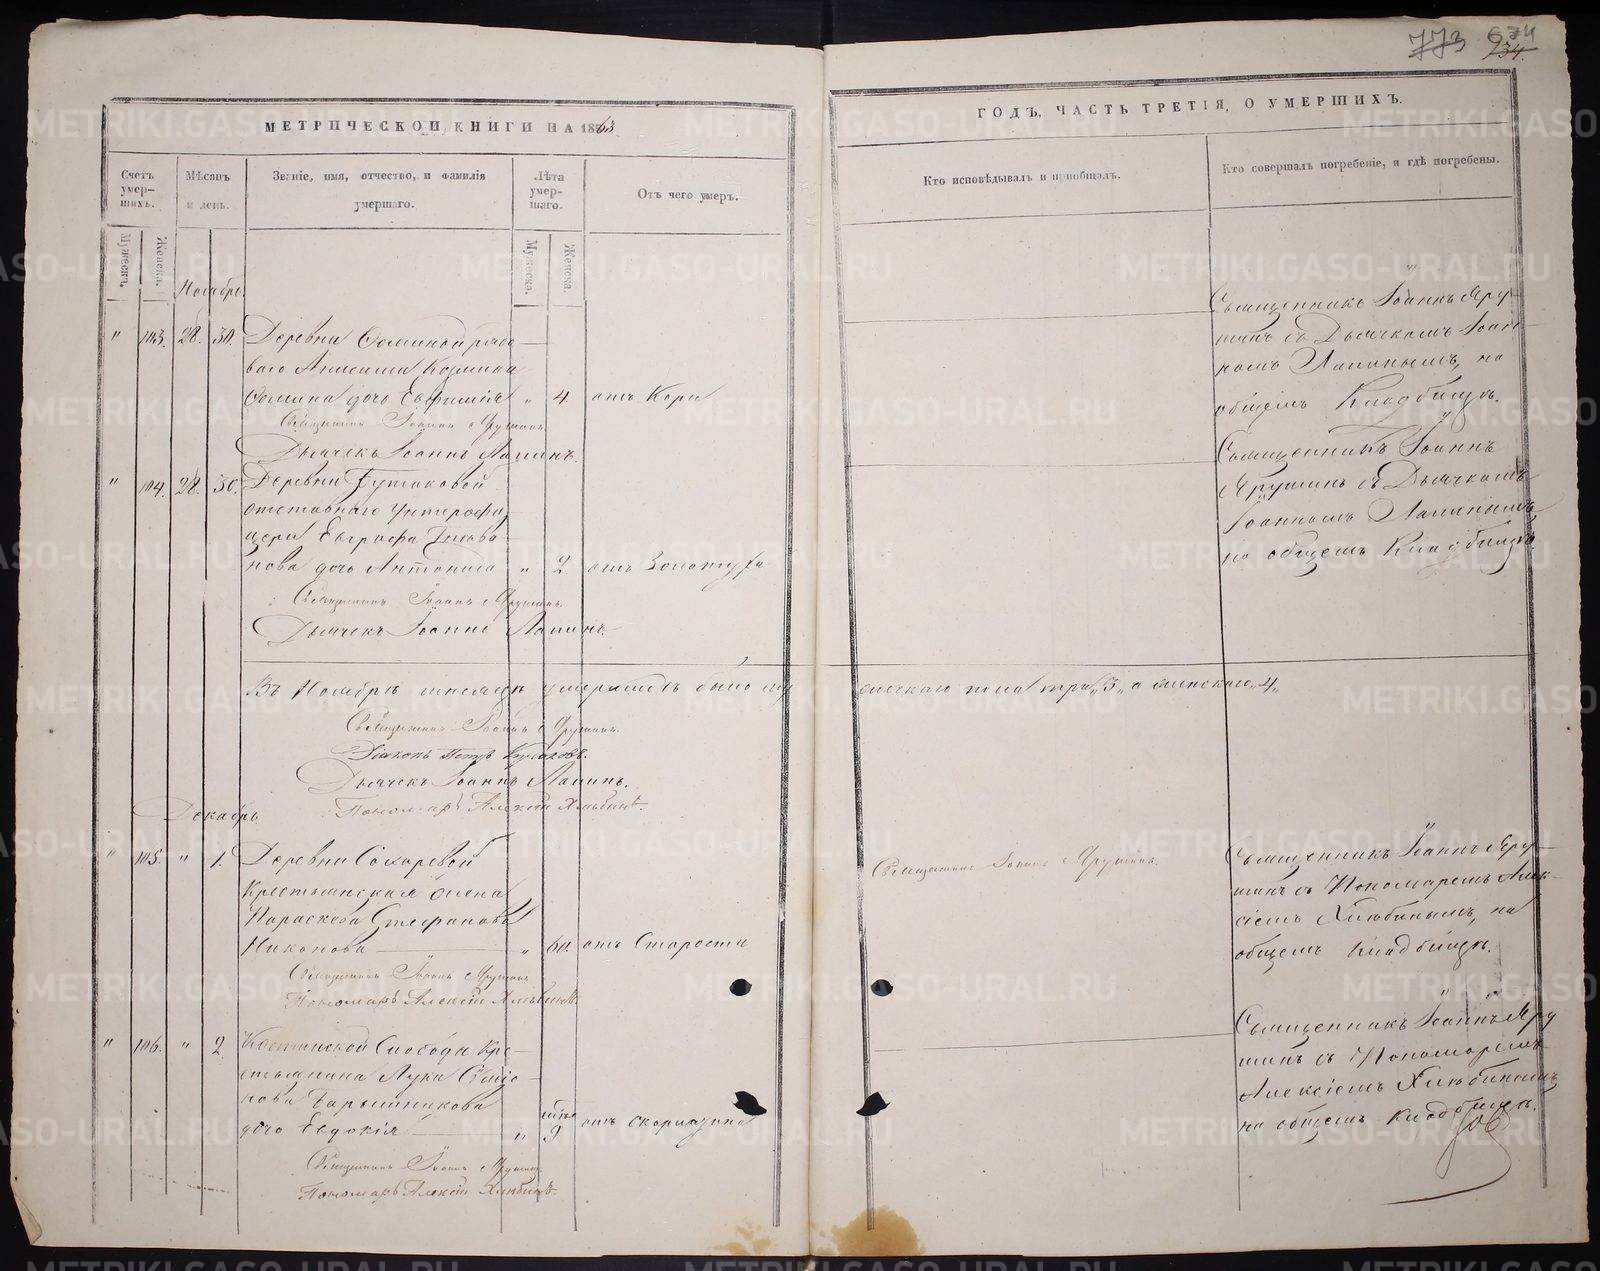 773 674
934.
МЕТРИЧЕСКОЙ КНИГИ НА 1863
ГОДЪ, ЧАСТЬ ТРЕТІЯ, О УМЕРШИХЪ.
Счетъ умер-шихъ.
Мѣсяцъ и день.
Званіе, имя, отчество, и фамилія умершаго.
Лѣта умер-шаго.
Отъ чего умеръ.
Кто исповѣдывалъ и пріобщалъ.
Кто совершалъ погребеніе, и гдѣ погребены.
Мужеска. Женска.
Мужеска. Женска.
Ноябрь.
" 103. 28. 30. Деревни Соминой рядо-
ваго Анисима Козмина
Сомина дочь Евфимія " 4. отъ Кори
Священникъ Іоаннъ Ярушинъ.
Дьячекъ Іоаннъ Лапинъ.
Священникъ Іоаннъ Яру-
шинъ съ Дьячкомъ Іоан-
номъ Лапинымъ, на
общемъ Кладбищѣ.
" 104. 28. 30. Деревни Бутаковой
отставнаго Унтерофи-
цера Евграфа
нова дочь Антонина " 2. отъ Золотухи
Священникъ Іоаннъ Ярушинъ.
Дьячекъ Іоаннъ Лапинъ.
Священникъ Іоаннъ
Ярушинъ съ Дьячкомъ
Іоанномъ Лапинымъ,
на общемъ Кладбищѣ.
Въ Ноябрѣ мѣсяцѣ умершихъ было му жескаго пола три "3" а женскаго "4"
Священникъ Іоаннъ Ярушинъ.
Діаконъ Петръ
Дьячекъ Іоаннъ Лапинъ.
Пономарь Алексій Хлюбинъ.
Декабрь.
" 105. " 1. Деревни Сохаревой
Крестьянская жена
Параскева Стефанова
Никонова " 60. отъ Старости
Священникъ Іоаннъ Ярушинъ
Пономарь Алексій Хлюбинъ.
Священникъ Іоаннъ Ярушинъ.
Священникъ Іоаннъ Яру-
шинъ съ Пономаремъ Алек-
сіемъ Хлюбинымъ, на
общемъ кладбищѣ.
" 106. " 2. Костинской Слободы Кре-
стьянина Луки Симео-
нова Барышникова
дочь Евдокія " 9. отъ скорлатины
Священникъ Іоаннъ Ярушинъ.
Пономарь Алексій Хлюбинъ.
Священникъ Іоаннъ Яру
шинъ съ Пономаремъ
Алексіемъ Хлюбинымъ
на общемъ Кладбищѣ.
METRIKI.GASO-URAL.RU